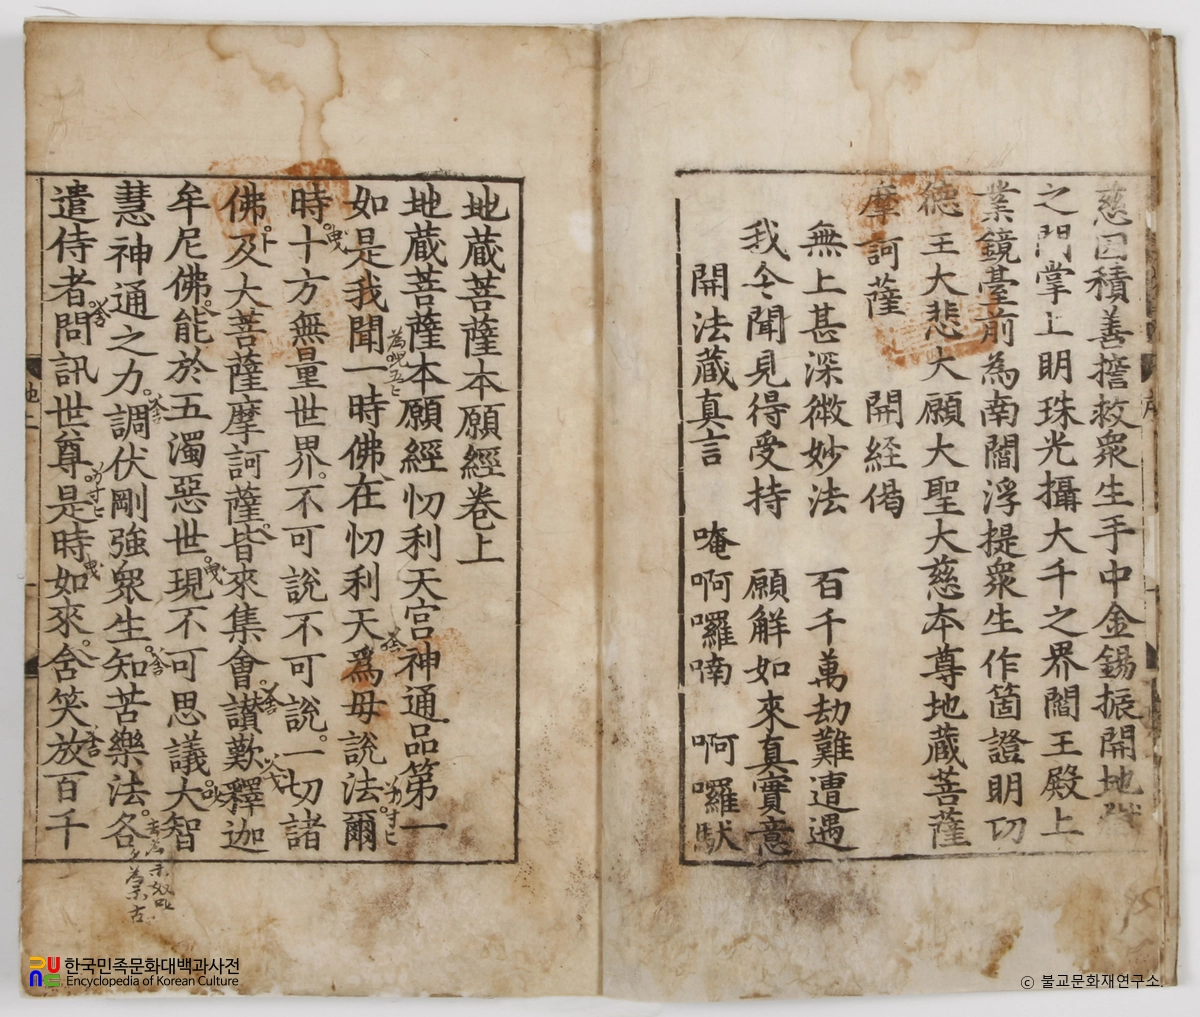 慈因積善擔救衆生手中金錫振開地
之門掌上明珠光攝大千之界閻王殿上
業鏡臺前為南閻浮提衆生作箇證明功
德王大悲大願大聖大慈本尊地蔵菩薩
摩訶薩 開経偈
無上甚深微妙法 百千萬劫難遭遇
我今聞見得受持 願解如來真實意
開法蔵真言 唵啊囉喃 啊囉馱
地蔵菩薩本願經卷上
地蔵菩薩本願經忉利天宮神通品第一
如是我聞一時佛在忉利天為母說法爾
時十方無量世界不可說不可說一切諸
佛及大菩薩摩訶薩皆來集會讃歎釋迦
牟尼佛能於五濁惡世現不可思議大智
慧神通之力調伏剛強衆生知苦樂法各
遣侍者問訊世尊是時如來含笑放百千
地 上
한국민족문화대백과사전
Encyclopedia of Korean Culture
ⓒ 불교문화재연구소